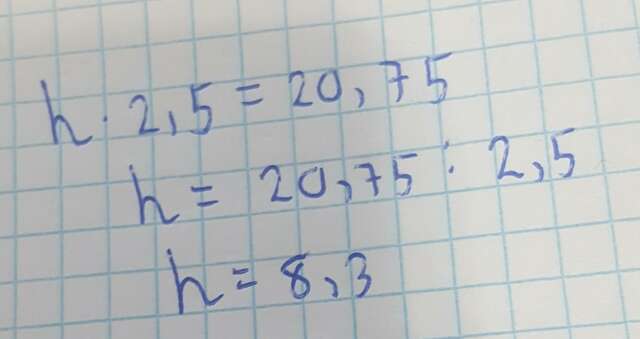 h · 2,5 = 20,75
h = 20,75 : 2,5
h = 8,3